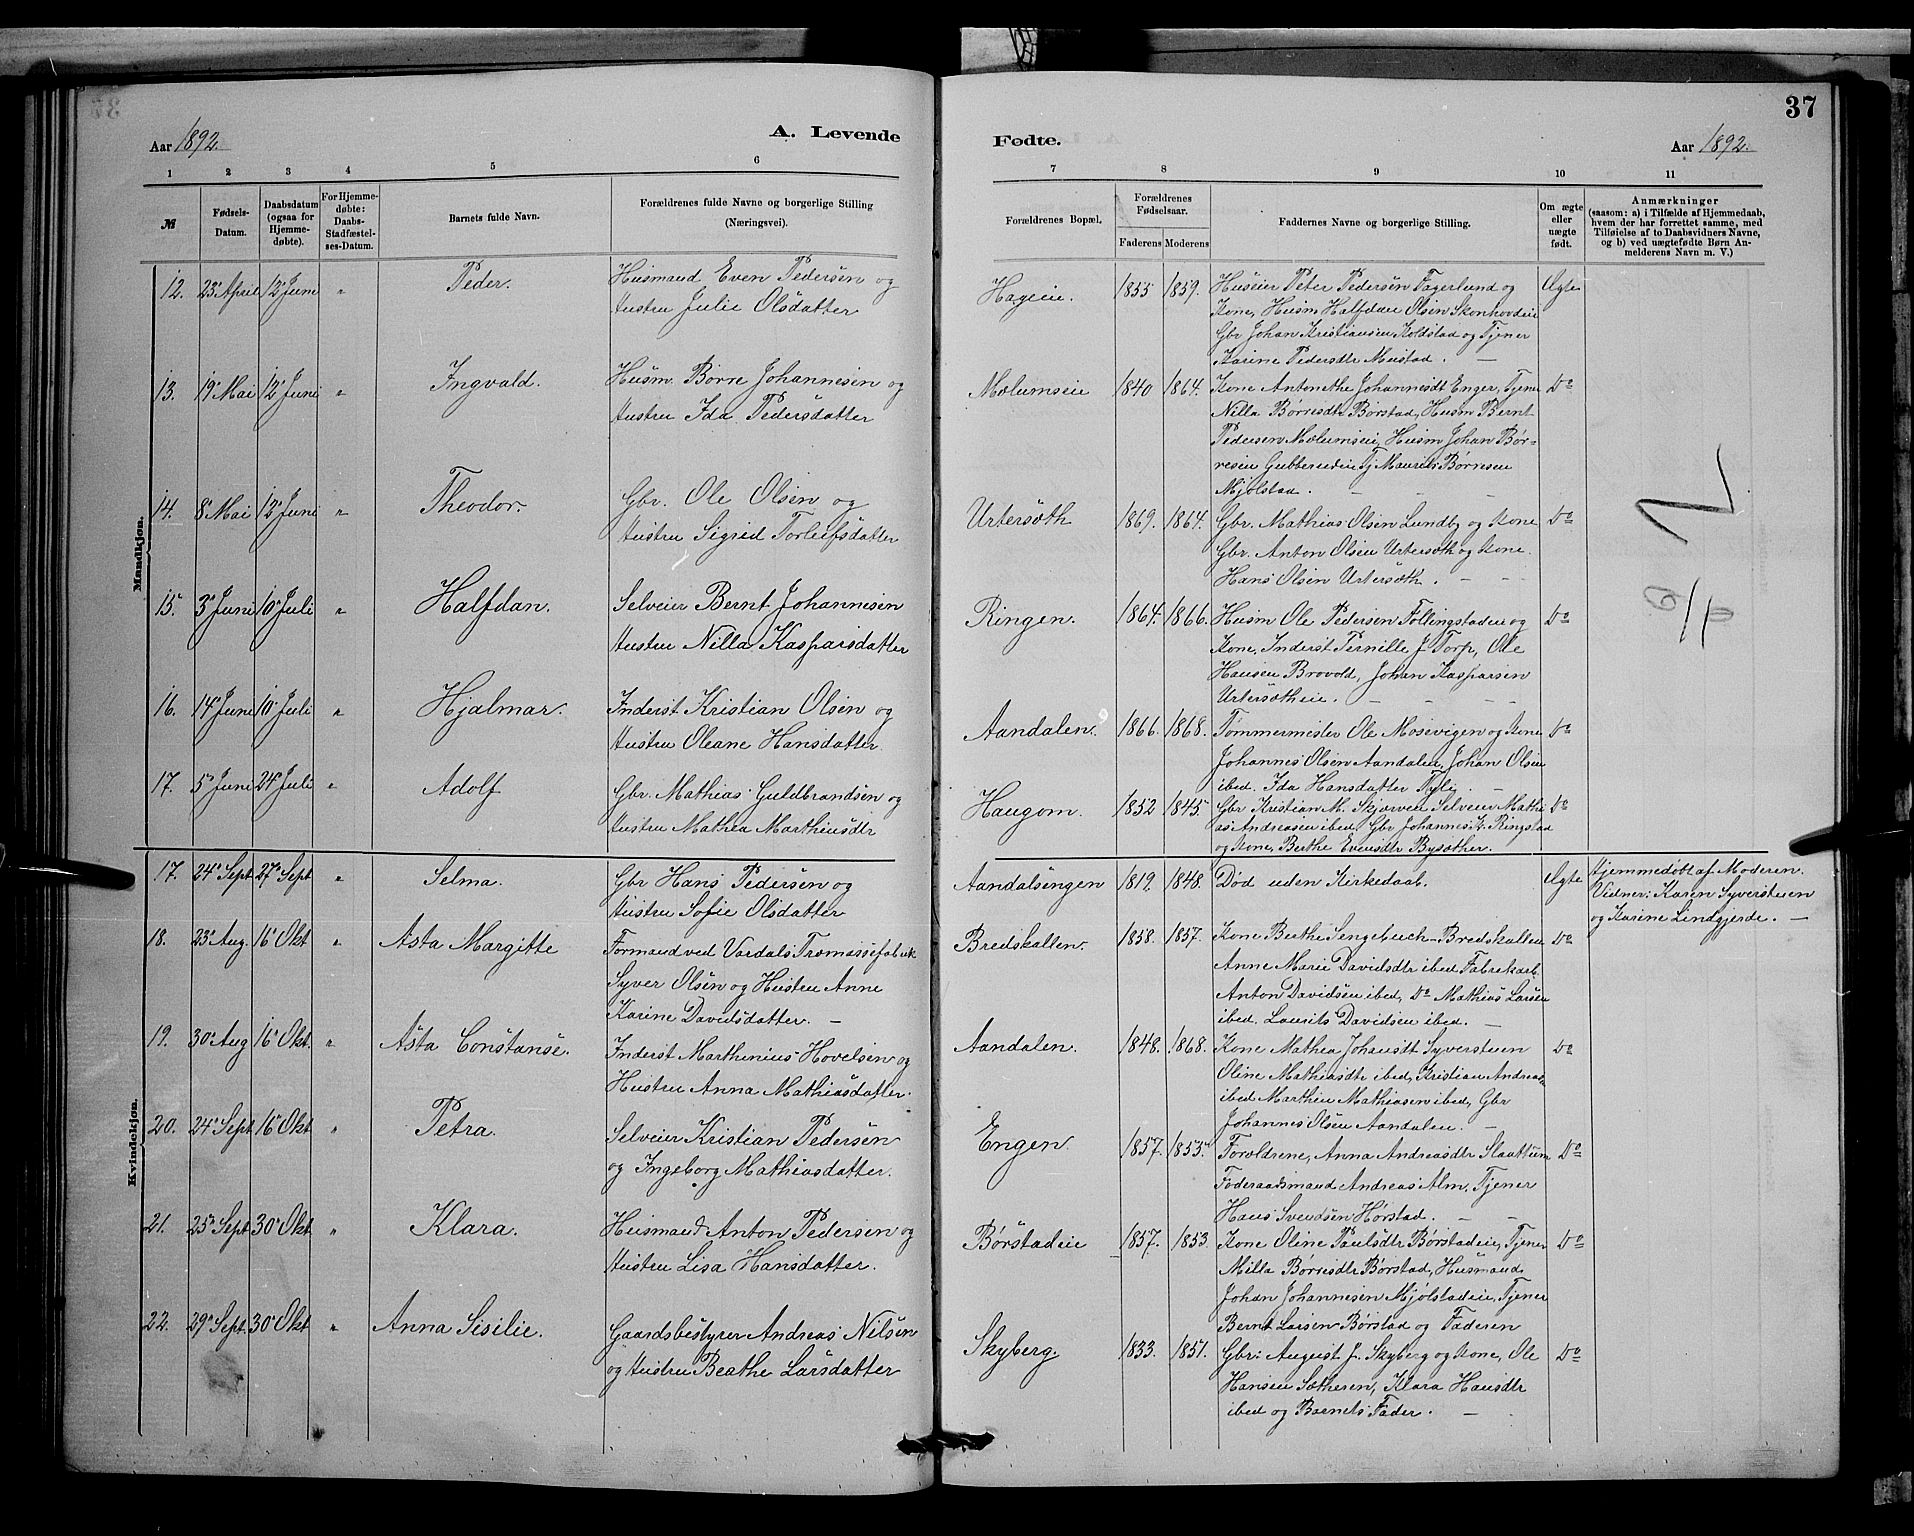 37
Aar 1892.
A. Levende
Fødte.
Aar 1892.
1 2 3 4 5 6 7 8 9 10 11
№
Fødsels-
Datum.
Daabsdatum
(ogsaa for
Hjemme-
døbte).
For Hjemme-
døbte:
Daabs-
Stadfæstel-
ses-Datum.
Barnets fulde Navn.
Forældrenes fulde Navne og borgerlige Stilling
(Næringsvei).
Forældrenes Bopæl.
Forældrenes
Fødselsaar.
Faderens Moderens
Faddernes Navne og borgerlige Stilling.
Om ægte
eller
uægte
født.
Anmærkninger
(saasom: a) i Tilfælde af Hjemmedaab,
hvem der har forrettet samme, med
Tilføielse af to Daabsvidners Navne,
og b) ved uægtefødte Børn An-
melderens Navn m. V.)
Mandkjøn.
12. 23de April 12te Juni " Peder. Husmand Even Pedersen og
Hustru Julie Olsdatter
Hageeie. 1855 1859. Huseier Peter Pedersen Fagerlund og Ægte
Kone, Husm Halfdan Olsen Skonhovdeie
Gbr Johan Kristiansen Koldstad og Tjener
Karine Pedersdtr Mustad. —
13. 19de Mai 12te Juni " Ingvald. Husm. Børre Johannesen og
Hustru Ida Pedersdatter
Mælumseie 1840 1864. Kone Antonethe Johannesdt Enger, Tjener Do
Nilla Børresdtr Børstad, Husm Bernt
Pedersen Mælumseie, Husm Johan Bør-
resen Gubberudeie Tj Maurits Børresen
Mjølstad. — — —
14. 8de Mai 12te Juni " Theodor. Gbr. Ole Olsen og
Hustru Sigrid Torleifsdatter
Urtersæth 1869. 1864. Gbr. Mathias Olsen Lundby og Kone Do
Gbr. Anton Olsen Urtersæth og Kone.
Hans Olsen Urtersæth. — —
15. 3de Juni 10de Juli " Halfdan. Selveier Bernt Johannesen
Hustru Nilla Kasparsdatter
Ringen. 1864. 1866. Husm Ole Pedersen Føllingstadeie og Do
Kone, Inderst Pernille J Torp, Ole
Hansen Brovold, Johan Kasparsen
Urtersætheie. — — — —
16. 14de Juni 10de Juli " Hjalmar. Inderst Kristian Olsen og
Hustru Oleane Hansdatter.
Aandalen. 1866. 1868. Tømmermester Ole Mosevigen og Kone Do
Johannes Olsen Aandalen, Johan Olsen
ibed. Ida Hansdatter —
17. 5te Juni 24de Juli " Adolf Gbr. Mathias Guldbrandsen og
Hustru Mathea Marthinusdtr
Haugom. 1852 1845. Gbr Kristian M. Skjørven Selveier Mathi Do
as Andreasen ibed, Gbr Johannes K. Ringstad
og Kone, Berthe Evensdtr Bysæther.
Kvindekjøn.
17. 24de Sept 27de Sept " Selma. Gbr Hans Pedersen og
Hustru Sofie Olsdatter
Aandalsengen 1819. 1848. Død uden Kirkedaab. Ægte Hjemmedøbt af Moderen.
Vidner: Karen Syversteen
og Karine Lindgjerde. —
18. 23de Aug. 16de Okt " Asta Margitte Formand ved Vardals Træmassefabrik
Syver Olsen og Hustru Anne
Karine Davidsdatter. —
Bredskallen. 1858. 1857. Kone Berthe Sengebuch-Bredskallen Do
Anne Marie Davidsdtr ibed Fabrekarb.
Anton Davidsen ibed, Do Mathias Larsen
ibed. Laurits Davidsen ibed. —
19. 30de Aug 16de Okt. " Asta Constanse. Inderst Marthinius Hovelsen og
Hustru Anna Mathiasdatter.
Aandalen. 1848. 1868. Kone Mathea Johansdt Syversteen Do
Oline Mathiasdtr ibed, Kristian Andreas
ibed Marthin Mathiasen ibed, Gbr
Johannes Olsen Aandalen. —
20. 24de Sept 16de Okt " Petra. Selveier Kristian Pedersen
og Ingeborg Mathiasdatter.
Engen. 1857. 1853. Forældrene, Anna Andreasdtr Slaattum Do
Føderaadsmand Andreas Alm. Tjener
Hans Svendsen Hørstad. — —
21. 25de Sept 30te Okt " Klara. Husmand Anton Pedersen og
Hustru Lisa Hansdatter.
Børstadeie 1857. 1853. Kone Oline Paulsdtr Børstadeie, Tjener Do
Milla Børresdtr Børstad, Husmand
Johan Johannesen Mjølstadeie, Tjener
Bernt Larsen Børstad og Faderen
22. 29de Sept. 30te Okt " Anna Sisilie. Gaardsbestyrer Andreas Nilsen
og Hustru Beathe Larsdatter
Skyberg. 1833. 1851. Gbr: August J. Skyberg og Kone, Ole Do
Hansen Sætheren, Klara Hansdtr
ibed og Barnets Fader. —